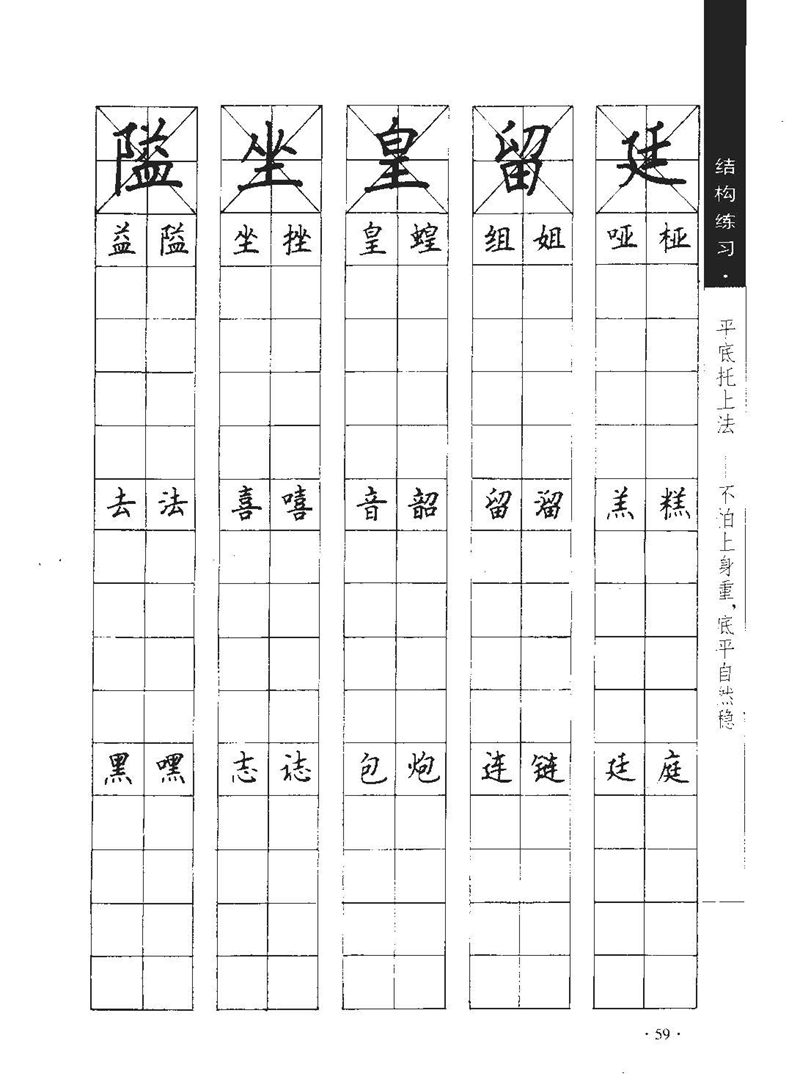 结构练习·
平底托上法——不怕上身重,底平自然稳
隘 坐 皇 留 廷
益 隘 坐 挫 皇 蝗 组 姐 哑 桠
去 法 喜 嘻 音 韶 留 溜 羔 糕
黑 嘿 志 誌 包 炮 连 链 廷 庭
·59·